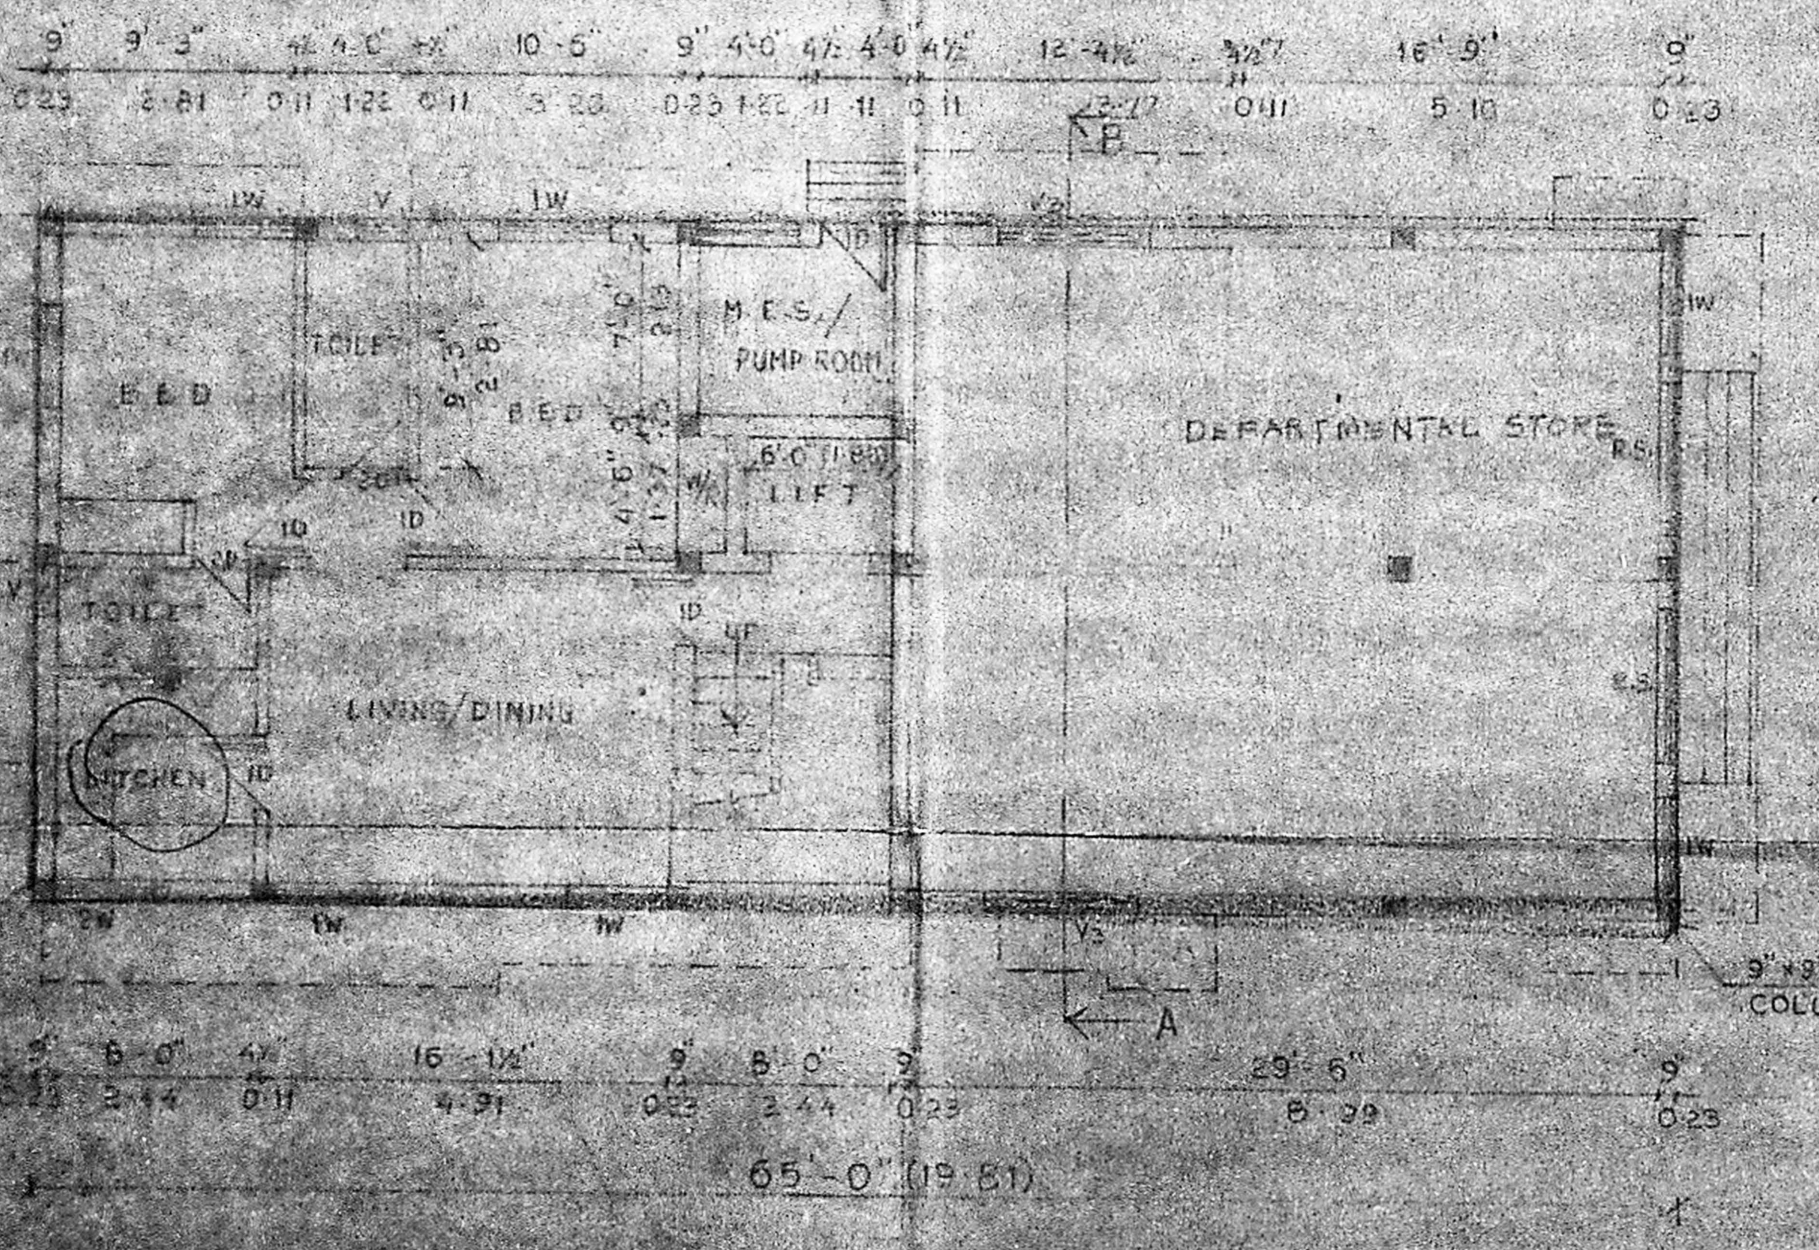 9" 9'-3" 4½ 4'-0" 4½" 10'-6" 9" 4'-0" 4½ 4'-0 4½" 12'-4½" 4½" 16'-9" 9"
0.23 2.81 0.11 1.22 0.11 3.20 0.23 1.22 .11 .11 0.11 0.11 5.10 0.23
B
1W V 1W V2
1D
BED
TOILET
9'-3"
2.81
BED
7'-0"
2.13
9"
.23
4'-6"
1.37
M.E.S./
PUMP ROOM
6'-0"
LIFT
DEPARTMENTAL STORE
R.S.
1W
1D
1D
2D
TOILET
V
1D
UP
LIVING/DINING
R.S.
KITCHEN
1D
1W
2W 1W 1W V2
9" × 9
COLU
A
9" 8'-0" 4½" 16'-1½" 9" 8'-0" 9" 29'-6" 9"
0.23 2.44 0.11 4.91 0.23 2.44 0.23 8.99 0.23
65'-0" (19.81)